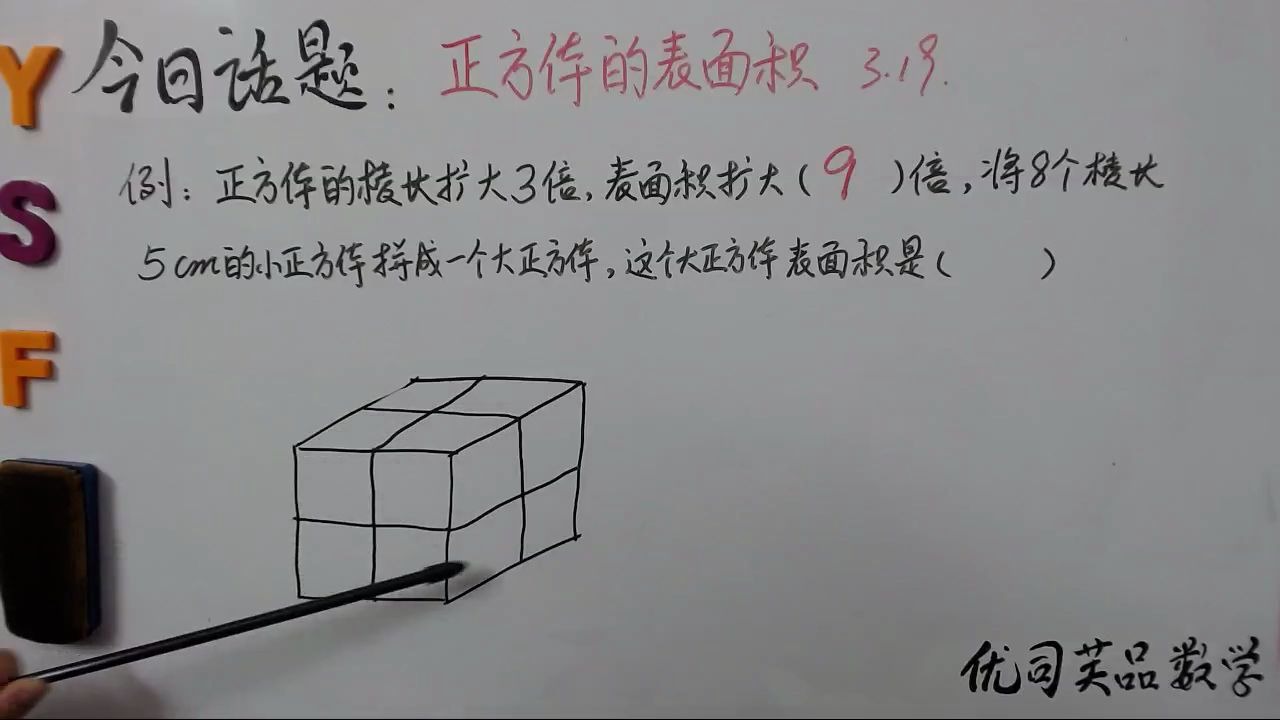 今日话题：正方体的表面积 3.19.
例：正方体的棱长扩大3倍，表面积扩大（9）倍，将8个棱长
5cm的小正方体拼成一个大正方体，这个大正方体表面积是（ ）
Y
S
F
优司芙品数学